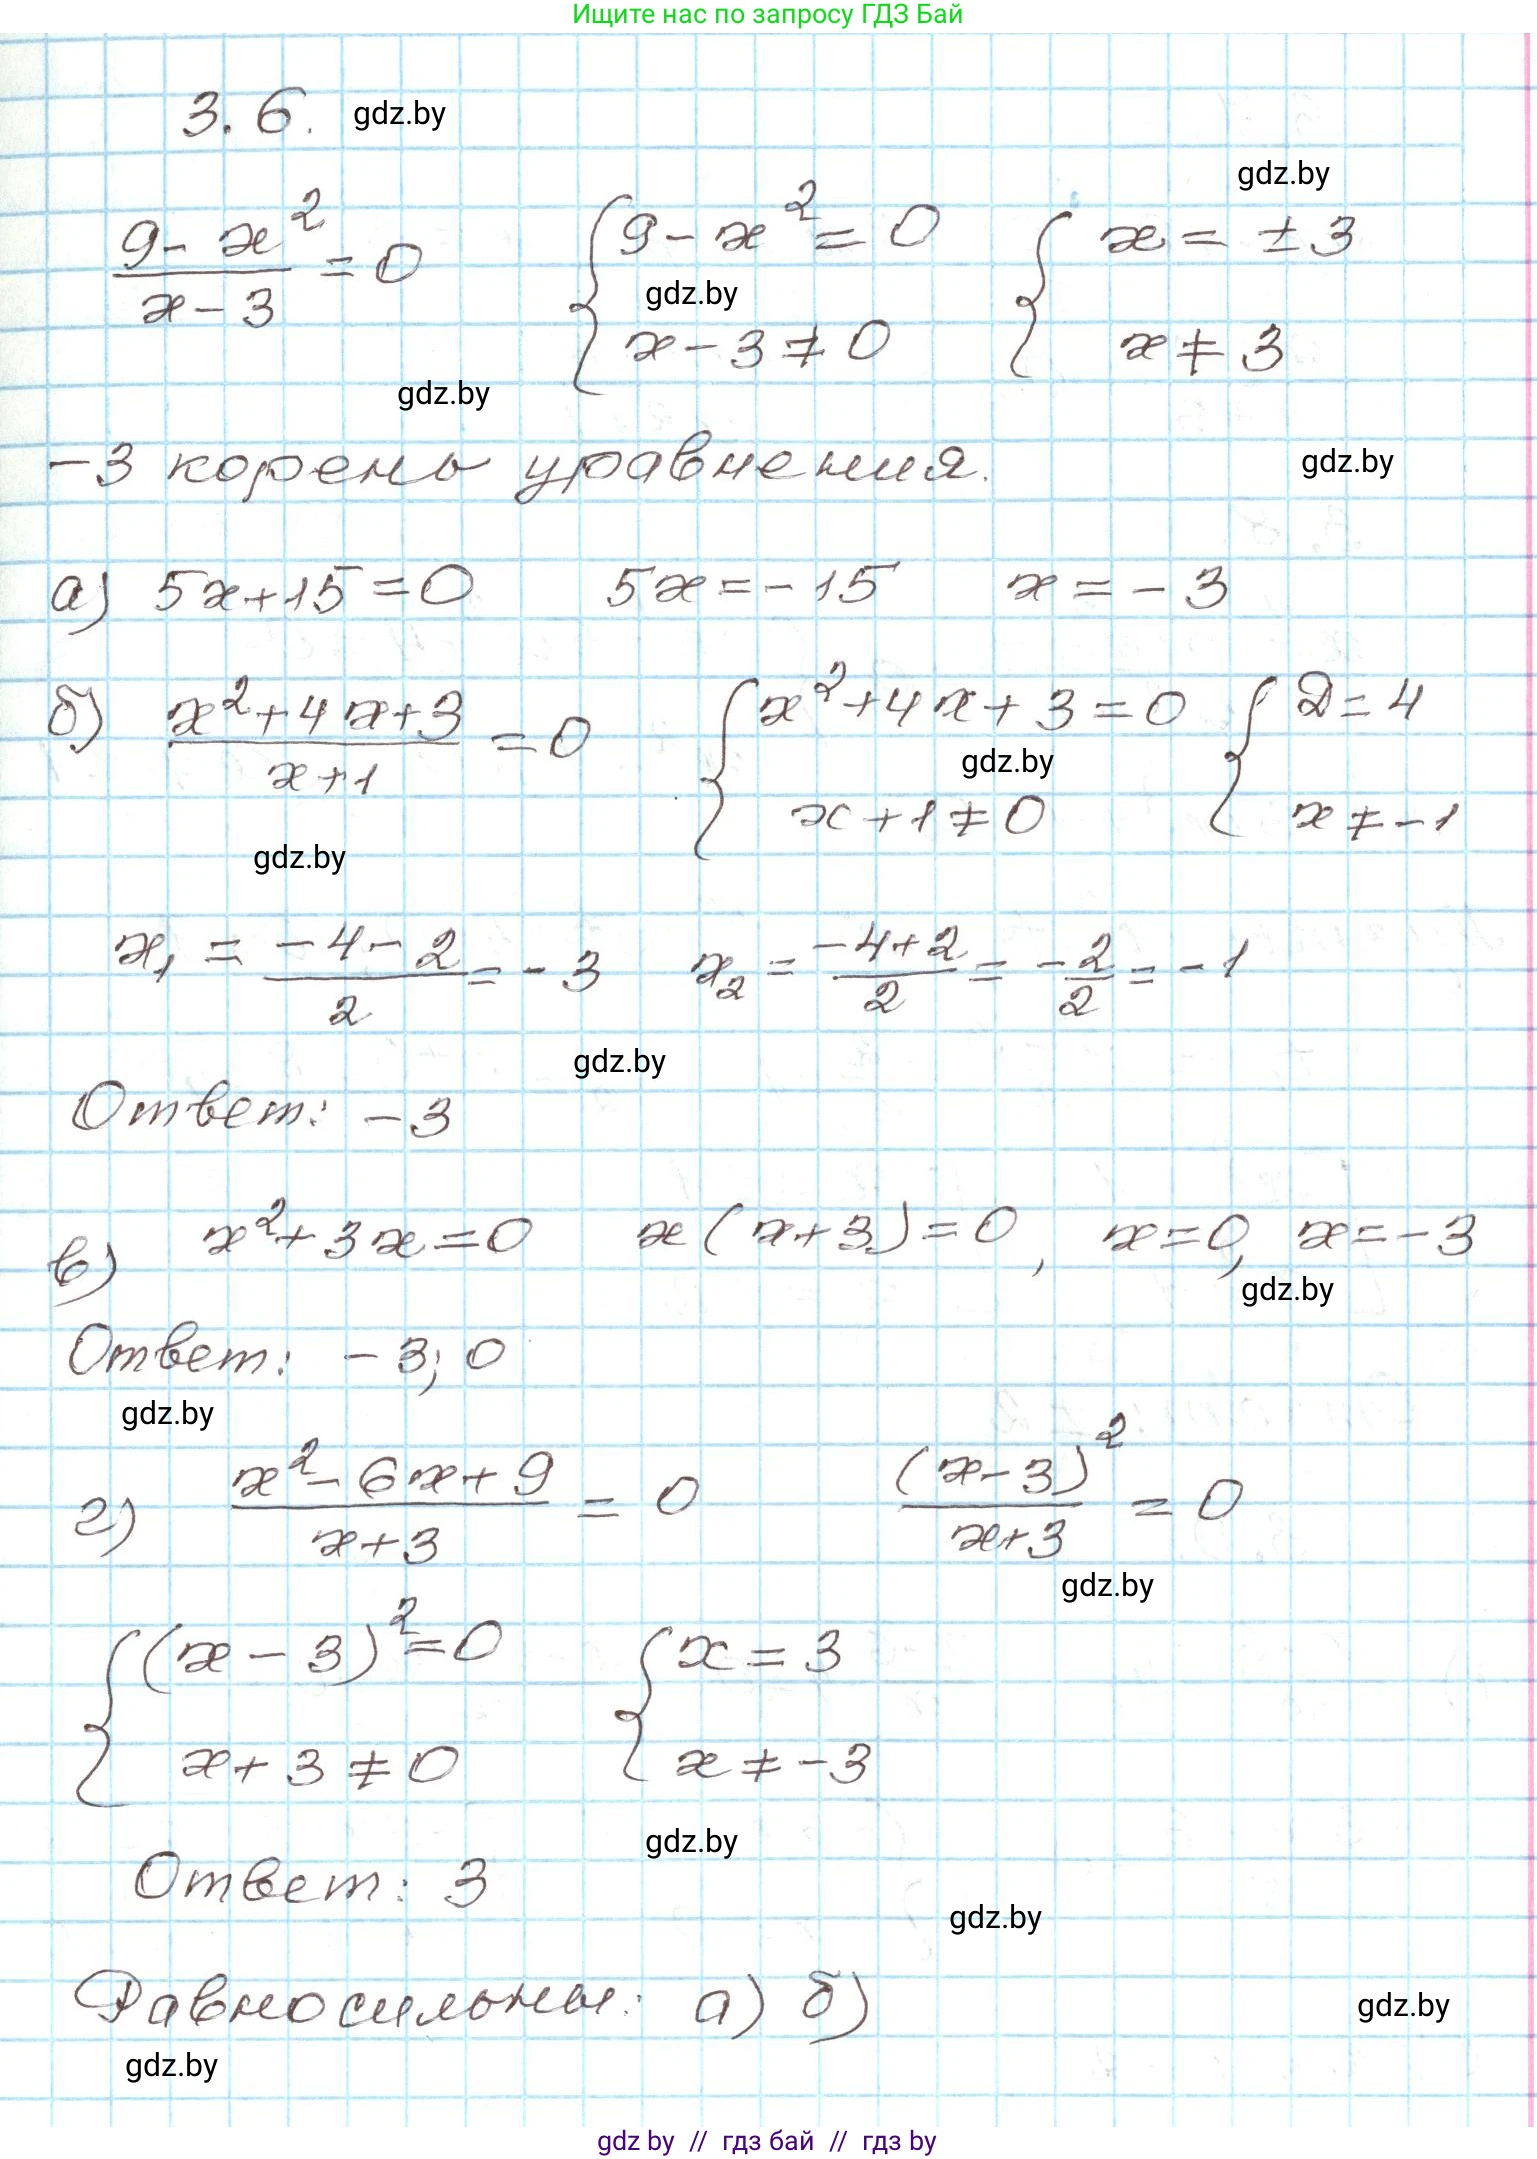 Ищите нас по запросу ГДЗ Бай
3.6. gdz.by
gdz.by
(9 - x²)/(x - 3) = 0 { 9 - x² = 0 { x = ± 3
gdz.by
x - 3 ≠ 0 x ≠ 3
gdz.by
-3 корень уравнения. gdz.by
а) 5x+15=0 5x=-15 x=-3
б) (x²+4x+3)/(x+1) = 0 { x²+4x+3=0 { D=4
gdz.by
x+1≠0 x≠-1
gdz.by
x₁ = (-4-2)/2 = -3 x₂ = (-4+2)/2 = -2/2 = -1
gdz.by
Ответ: -3
в) x²+3x=0 x(x+3)=0, x=0, x=-3
gdz.by
Ответ: -3; 0
gdz.by
г) (x²-6x+9)/(x+3) = 0 (x-3)²/(x+3) = 0
gdz.by
{ (x-3)²=0 { x=3
x+3≠0 x≠-3
gdz.by
Ответ: 3
gdz.by
Равносильны: а) б)
gdz.by
gdz.by
gdz by // гдз бай // гдз by